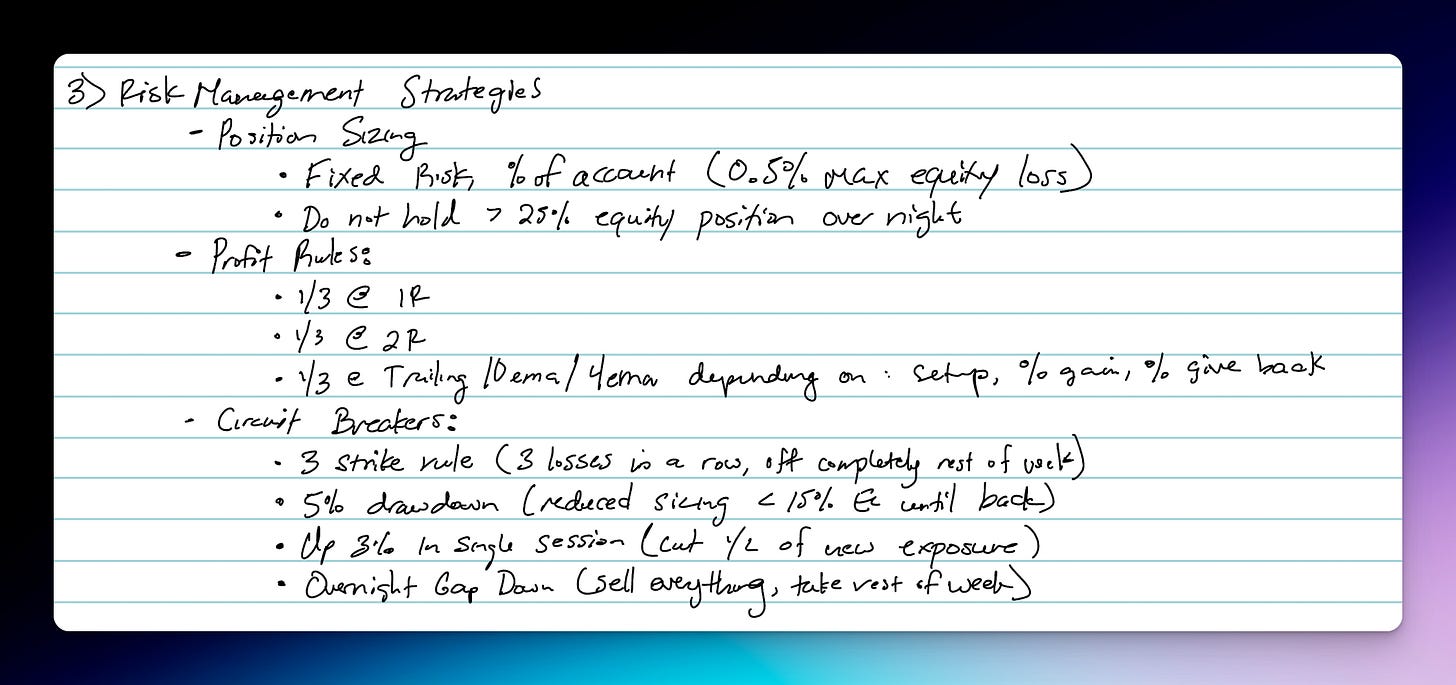 3) Risk Management Strategies
- Position Sizing
• Fixed Risk, % of account (0.5% max equity loss)
• Do not hold > 25% equity position over night
- Profit Rules:
• 1/3 @ 1R
• 1/3 @ 2R
• 1/3 @ Trailing 10ema/4ema depending on : setup, % gain, % give back
- Circuit Breakers:
• 3 strike rule (3 losses in a row, off completely rest of week)
• 5% drawdown (reduced sizing < 15% Ec until back)
• Up 3% in single session (cut 1/2 of new exposure)
• Overnight Gap Down (sell everything, take rest of week)